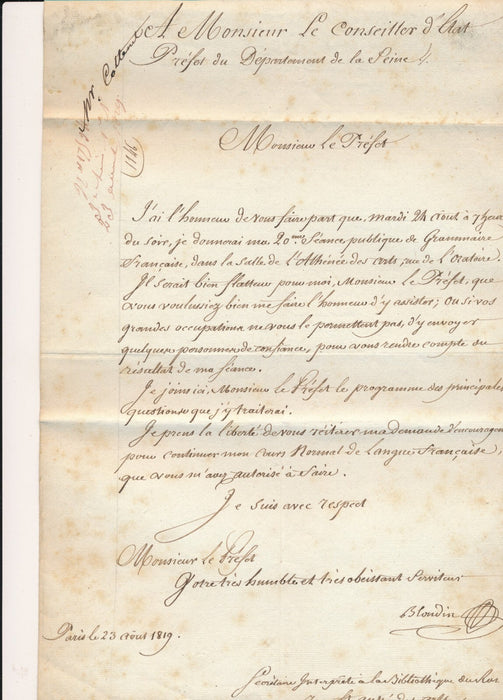 A Monsieur Le Conseiller d'Etat
Préfet du Département de la Seine
Mr. 
1146
Monsieur Le Préfet
J'ai l'honneur de vous faire part que, mardi 24 août à 7 heur
du soir, je donnerai ma 20.me Séance publique de Grammaire
Française, dans la Salle de l'Athénée des Arts, rue de l'Oratoire.
Il serait bien flatteur pour moi, Monsieur le Préfet, que
vous voulussiez bien me faire l'honneur d'y assister; ou si vos
grandes occupations ne vous le permettent pas, d'y envoyer
quelques personnes de confiance, pour vous rendre compte du
résultat de ma séance.
Je joins ici, Monsieur le Préfet le programme des principales
questions que j'y traiterai.
Je prens la liberté de vous réitérer ma demande d'encouragem
pour continuer mon Cours Normal de Langue Française,
que vous m'avez autorisé à faire.
Je suis avec respect
Monsieur le Préfet
Votre très humble et très obéissant Serviteur
Blondin
Paris le 23 août 1819.
Secrétaire Interprète à la Bibliothèque du Roi